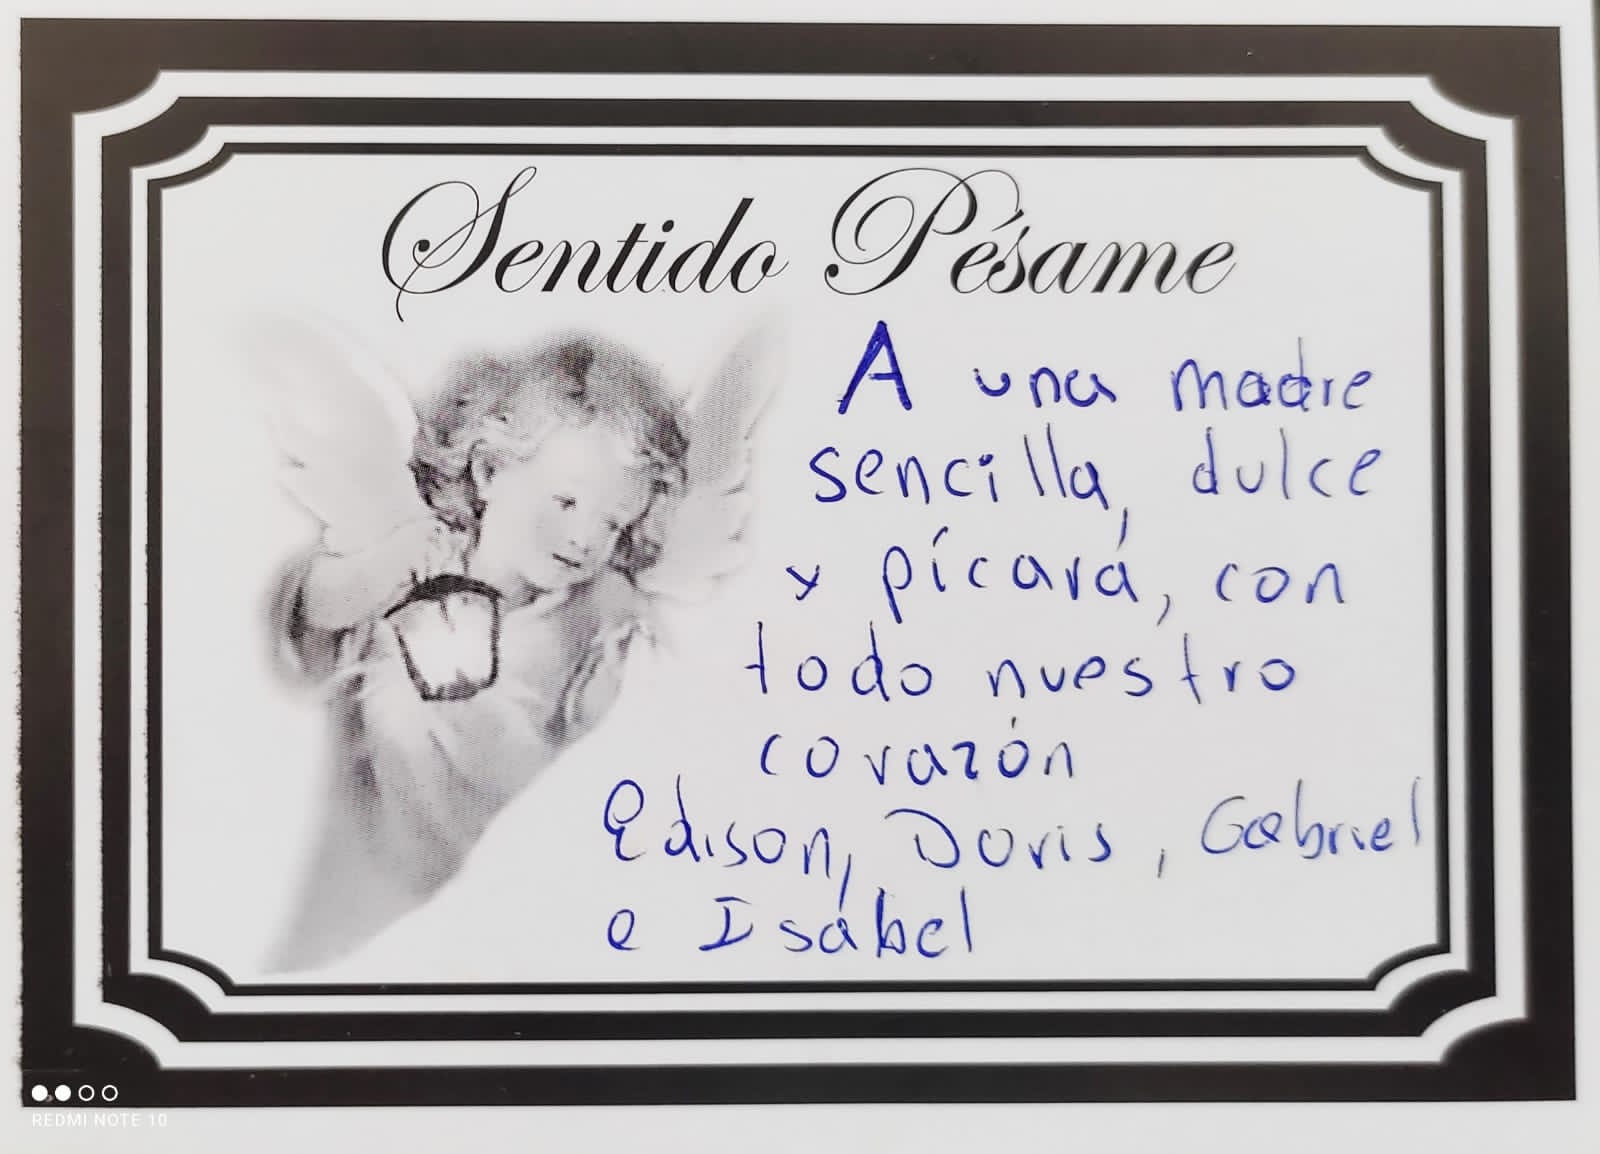 Sentido Pésame
A una madre
sencilla, dulce
y pícará, con
todo nuestro
corazón
Edison, Doris, Gabriel
e Isabel
REDMI NOTE 10